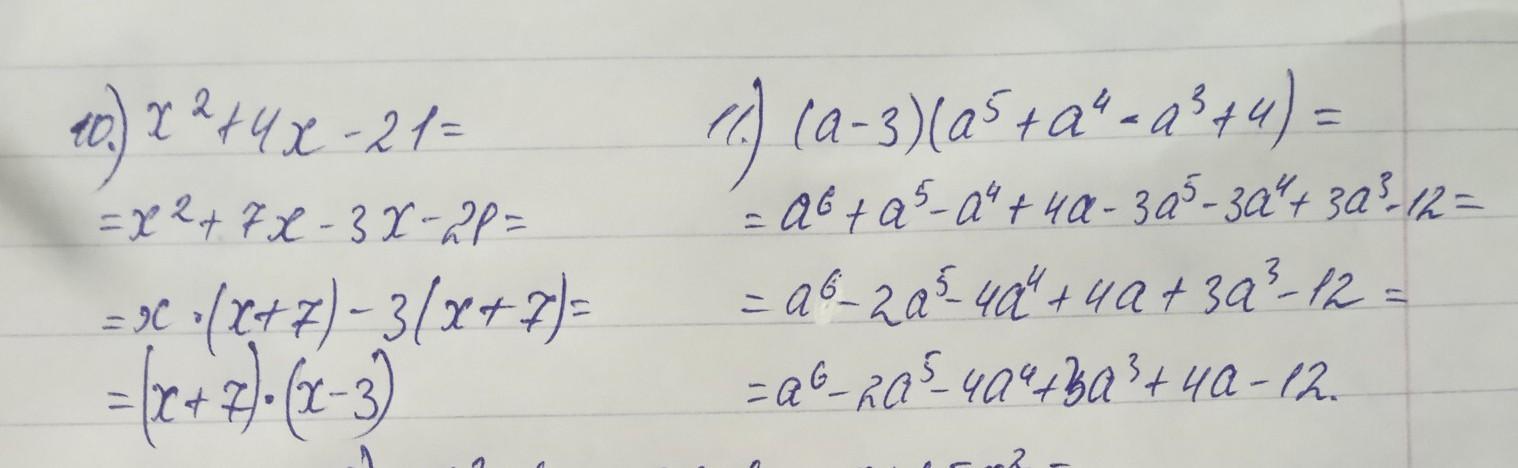 10.) x² + 4x - 21 =
= x² + 7x - 3x - 21 =
= x · (x + 7) - 3(x + 7) =
= (x + 7) · (x - 3)
11.) (a - 3)(a⁵ + a⁴ - a³ + 4) =
= a⁶ + a⁵ - a⁴ + 4a - 3a⁵ - 3a⁴ + 3a³ - 12 =
= a⁶ - 2a⁵ - 4a⁴ + 4a + 3a³ - 12 =
= a⁶ - 2a⁵ - 4a⁴ + 3a³ + 4a - 12.